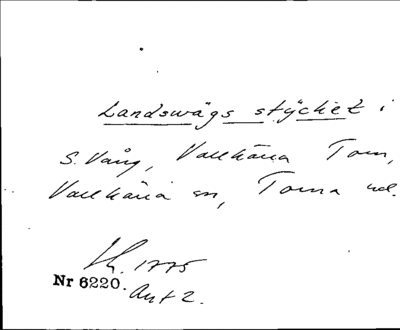 Landswägs stÿcket i
S. Vång, Vallkärra Torn,
Vallkärra sn, Torna hd.
Lh. 1775
Nr 6220. Akt 2.